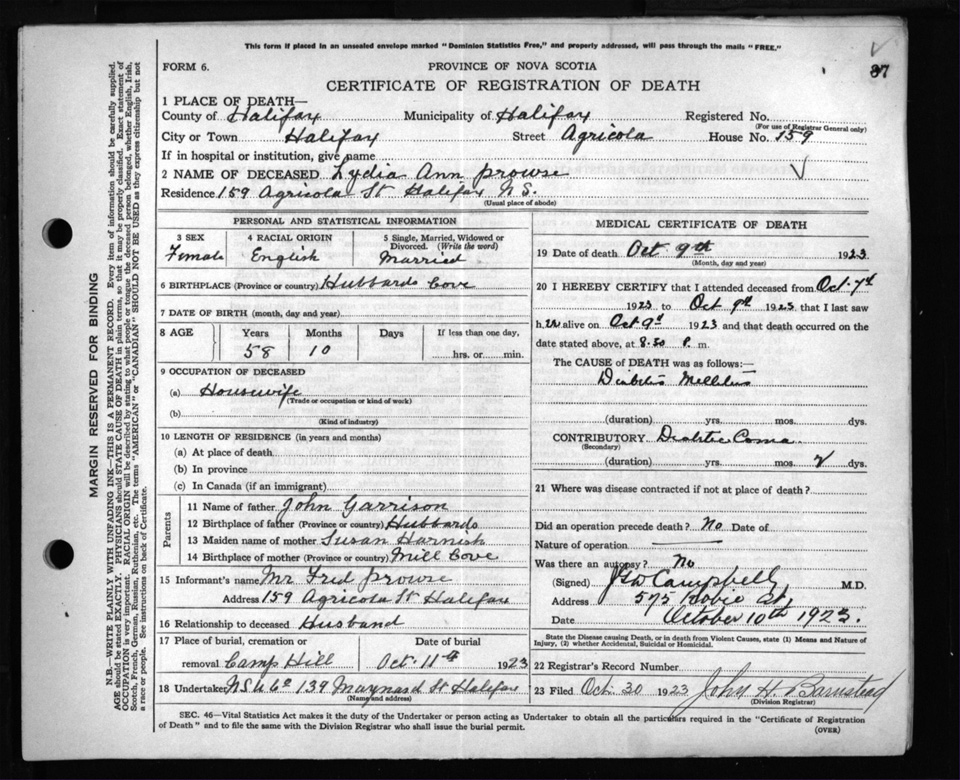 This form if placed in an unsealed envelope marked "Dominion Statistics Free," and properly addressed, will pass through the mails "FREE."
37
FORM 6.
PROVINCE OF NOVA SCOTIA
CERTIFICATE OF REGISTRATION OF DEATH
1 PLACE OF DEATH—
County of Halifax Municipality of Halifax Registered No.
(For use of Registrar General only)
City or Town Halifax Street Agricola House No. 159
If in hospital or institution, give name
2 NAME OF DECEASED Lydia Ann Prowse
Residence 159 Agricola St Halifax N.S.
(Usual place of abode)
PERSONAL AND STATISTICAL INFORMATION
3 SEX 4 RACIAL ORIGIN 5 Single, Married, Widowed or Divorced. (Write the word)
Female English Married
6 BIRTHPLACE (Province or country) Hubbards Cove
7 DATE OF BIRTH (month, day and year)
8 AGE Years Months Days If less than one day,
58 10 hrs. or min.
9 OCCUPATION OF DECEASED
(a) Housewife
(Trade or occupation or kind of work)
(b)
(Kind of industry)
10 LENGTH OF RESIDENCE (in years and months)
(a) At place of death
(b) In province
(c) In Canada (if an immigrant)
Parents
11 Name of father John Garrison
12 Birthplace of father (Province or country) Hubbards
13 Maiden name of mother Susan Harnish
14 Birthplace of mother (Province or country) Mill Cove
15 Informant's name Mr Fred Prowse
Address 159 Agricola St Halifax
16 Relationship to deceased Husband
17 Place of burial, cremation or Date of burial
removal Camp Hill Oct. 11th 1923
18 Undertaker N S U Co 139 Maynard St Halifax
(Name and address)
MEDICAL CERTIFICATE OF DEATH
19 Date of death Oct 9th 1923
(Month, day and year)
20 I HEREBY CERTIFY that I attended deceased from Oct. 7th
1923 to Oct 9th 1923 that I last saw
h.er alive on Oct 9th 1923 and that death occurred on the
date stated above, at 8.30 P. m.
The CAUSE OF DEATH was as follows:—
Diabetis Mellitus
(duration) yrs. mos. dys.
CONTRIBUTORY Diabetic Coma
(Secondary)
(duration) yrs. mos. 2 dys.
21 Where was disease contracted if not at place of death?
Did an operation precede death? No Date of
Nature of operation
Was there an autopsy? No
(Signed) Campbell, M.D.
Address 575 Robie St,
Date October 10th 1923.
State the Disease causing Death, or in death from Violent Causes, state (1) Means and Nature of
Injury, (2) whether Accidental, Suicidal or Homicidal.
22 Registrar's Record Number
23 Filed Oct. 20 1923 John H. Barnstead
(Division Registrar)
SEC. 46—Vital Statistics Act makes it the duty of the Undertaker or person acting as Undertaker to obtain all the particulars required in the "Certificate of Registration
of Death" and to file the same with the Division Registrar who shall issue the burial permit.
(OVER)
MARGIN RESERVED FOR BINDING
N.B.—WRITE PLAINLY WITH UNFADING INK—THIS IS A PERMANENT RECORD. Every item of information should be carefully supplied.
AGE should be stated EXACTLY. PHYSICIANS should STATE CAUSE OF DEATH in plain terms, so that it may be properly classified. Exact statement of
OCCUPATION is very important. RACIAL ORIGIN will be described by stating to what people or tongue the deceased person belonged, whether English, Irish,
Scotch, French, German, Russian, Ruthenian, etc. The terms "AMERICAN" or "CANADIAN" SHOULD NOT BE USED as they express citizenship but not
a race or people. See instructions on back of Certificate.